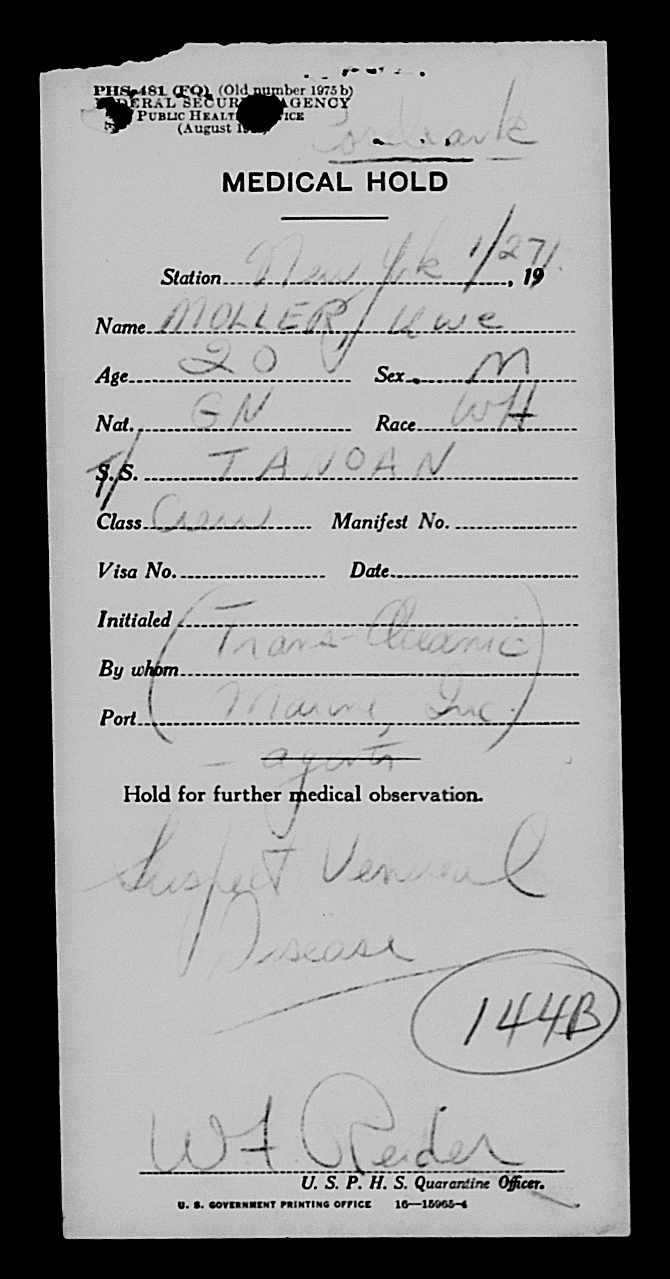 PHS-481 (FQ) (Old number 1975 b)
FEDERAL SECURITY AGENCY
PUBLIC HEALTH SERVICE
(August
MEDICAL HOLD
Station New Yk 1/27/, 19
Name MOLLER, Uwe
Age 20 Sex M
Nat. GN Race WH
T/ S.S. TANOAN
Class Crew Manifest No.
Visa No. Date
Initialed (Trans-Oceanic
By whom
Port Marine, Inc.)
- agents
Hold for further medical observation.
Suspect Venereal
Disease
144B
W F Reider
U. S. P. H. S. Quarantine Officer.
U. S. GOVERNMENT PRINTING OFFICE 16—15965-4